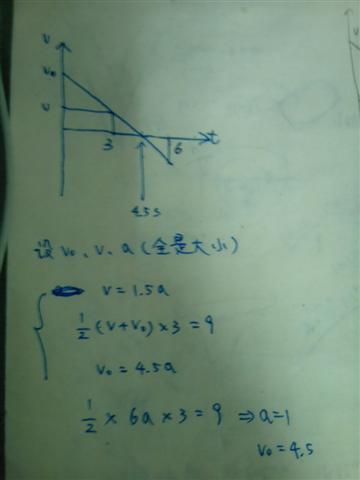 v
v₀
v
3
6
t
4.5s
设 v₀、v、a (全是大小)
v=1.5a
1/2 (v+v₀)×3=9
v₀=4.5a
1/2 × 6a × 3 = 9 ⇒ a=1
v₀=4.5